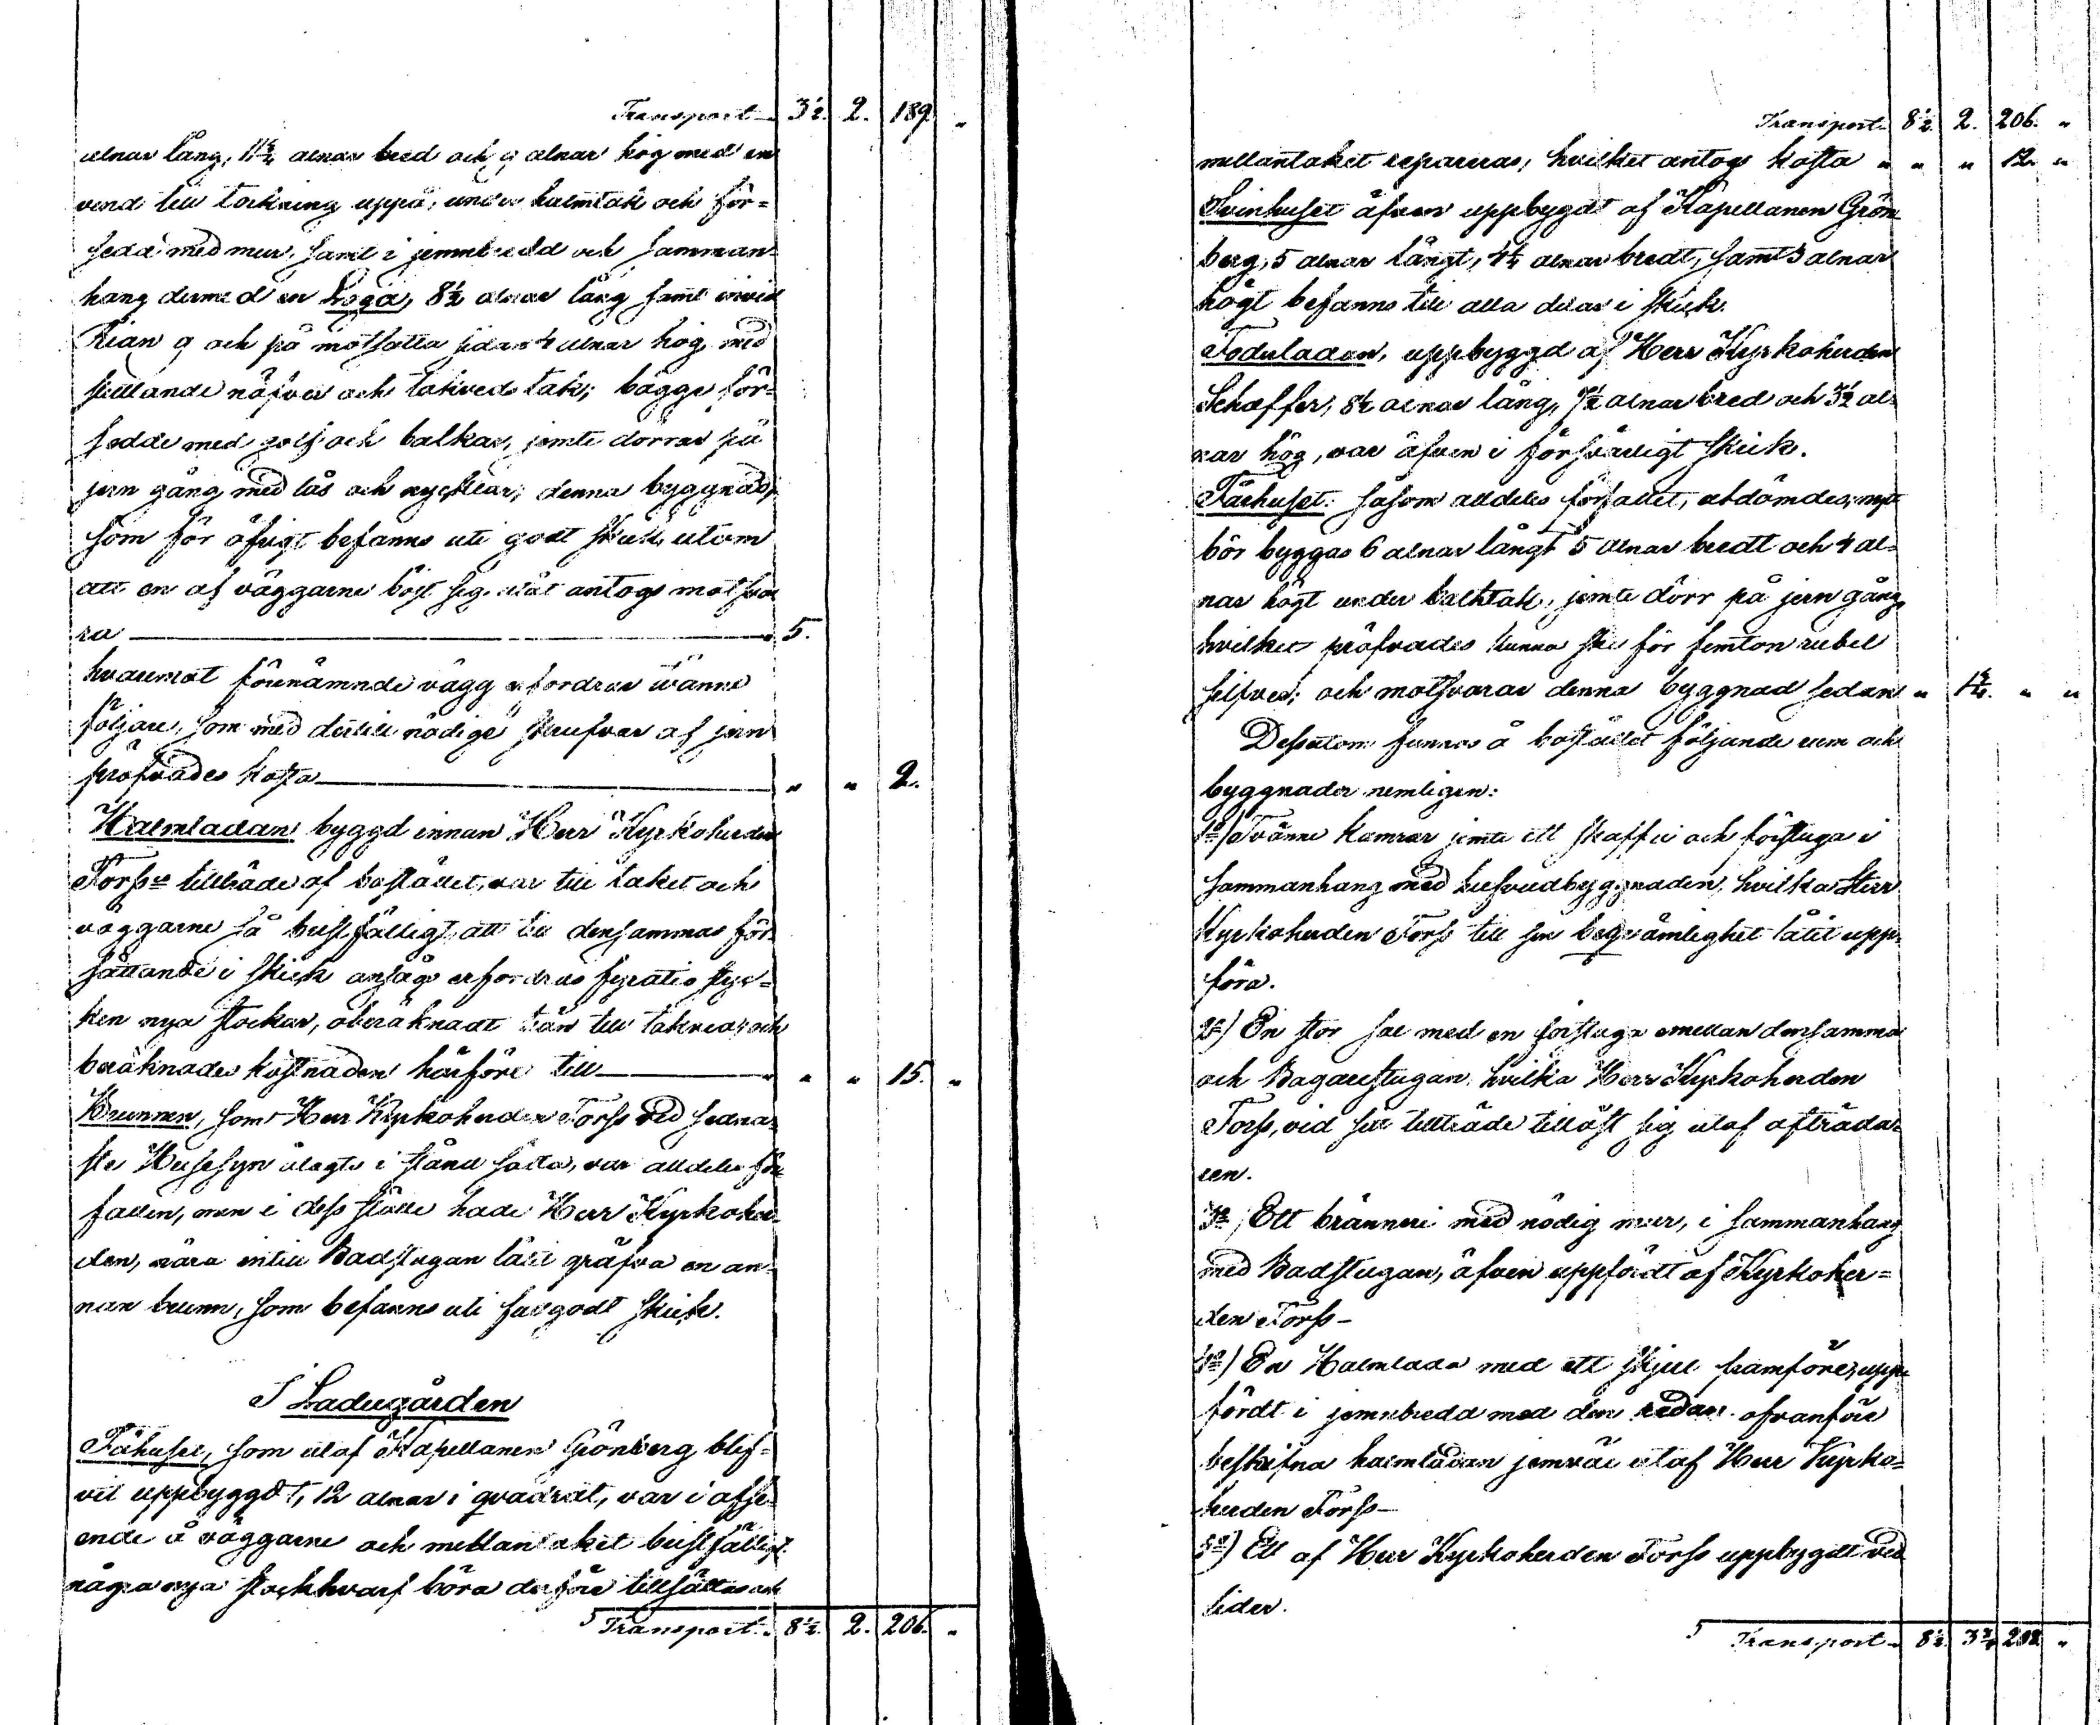 Transport 3½. 2. 189. "
alnar lång, 11¾ alnar bred och 9 alnar hög med en
vind till torkning uppå, under halmtak och för=
sedd med mur, samt i jemnbredd och samman=
hang dermed en Loga, 8½ alnar lång samt invid
Rian 9 och på motsatta sidan 4 alnar hög med
fällande näfver och takveds tak; bägge för=
sedde med golf och balkar, jemte dörrar på
jern gång med lås och nycklar; denna byggnad,
som för öfrigt befanns uti godt skick utom
att en af väggarne böjt sig utåt antogs motsva
ra 5.
hvaremot förenämnde vägg erfordrar tvänne
följare, som med dertill nödige skrufvar af jern
pröfvades kosta " " 2.
Halmladan byggd innan Herr Kyrkoherden
Forss's tillträde af bostället, var till taket och
väggarne så bristfälligt, att till densammas för
sättande i skick ansågs erfordras fyratio styc=
ken nya stockar, oberäknadt trän till takved; och
beräknades kostnaden härföre till " " 15. "
Brunnen, som Herr Kyrkoherden Forss vid sedna=
ste Husesyn ålagts i stånd sätta, var alldeles för
fallen, men i dess ställe hade Herr Kyrkoher=
den, nära intill Badstugan låtit gräfva en an=
nan brunn, som befanns uti fullgodt skick.
I Ladugården
Fähuset, som utaf Kapellanen Grönberg blif=
vit uppbyggdt, 12 alnar i qvadrat, var i afse=
ende å väggarne och mellantaket bristfälligt.
några nya stockhvarf böra derföre tillsättas och
Transport 8½. 2. 206. "
Transport 8½. 2. 206. "
mellantaket repareras, hvilket antogs kosta " " " 12. "
Svinhuset äfven uppbygdt af Kapellanen Grön
berg, 5 alnar långt, 4¼ alnar bredt, samt 3 alnar
högt befanns till alla delar i skick.
Foderladan, uppbyggd af Herr Kyrkoherden
Schæffer, 8½ alnar lång, 7½ alnar bred och 3½ al=
nar hög, var äfven i försvarligt skick.
Fårhuset: såsom alldeles förfallet, utdömdes; nytt
bör byggas 6 alnar långt 5 alnar bredt och 4 al=
nar högt under balktak, jemte dörr på jern gång,
hvilket pröfvades kunna ske för femton rubel
silfver; och motsvarar denna byggnad sedan " 1¾. " "
Dessutom funnos å bostället följande rum och
byggnader nemligen:
1o) Tvänne kamrar jemte ett skafferi och förstuga i
sammanhang med hufvudbyggnaden, hvilka Herr
Kyrkoherden Forss till sin beqvämlighet låtit upp=
föra.
2o) En stor sal med en förstuga emellan densamma
och Bagarestugan, hvilka Herr Kyrkoherden
Forss, vid sitt tillträde tillöst sig utaf afträda=
ren.
3o) Ett bränneri med nödig mur, i sammanhang
med Badstugan, äfven uppfördt af Kyrkoher=
den Forss-
4o) En Halmlada med ett skjul framföre, upp
fördt i jemnbredd med den redan ofvanföre
beskrifna halmladan jemväl utaf Herr Kyrko=
herden Forss-
5o) Ett af Herr Kyrkoherden Forss uppbygdt ved
lider.
Transport 8½. 3¾. 218. "